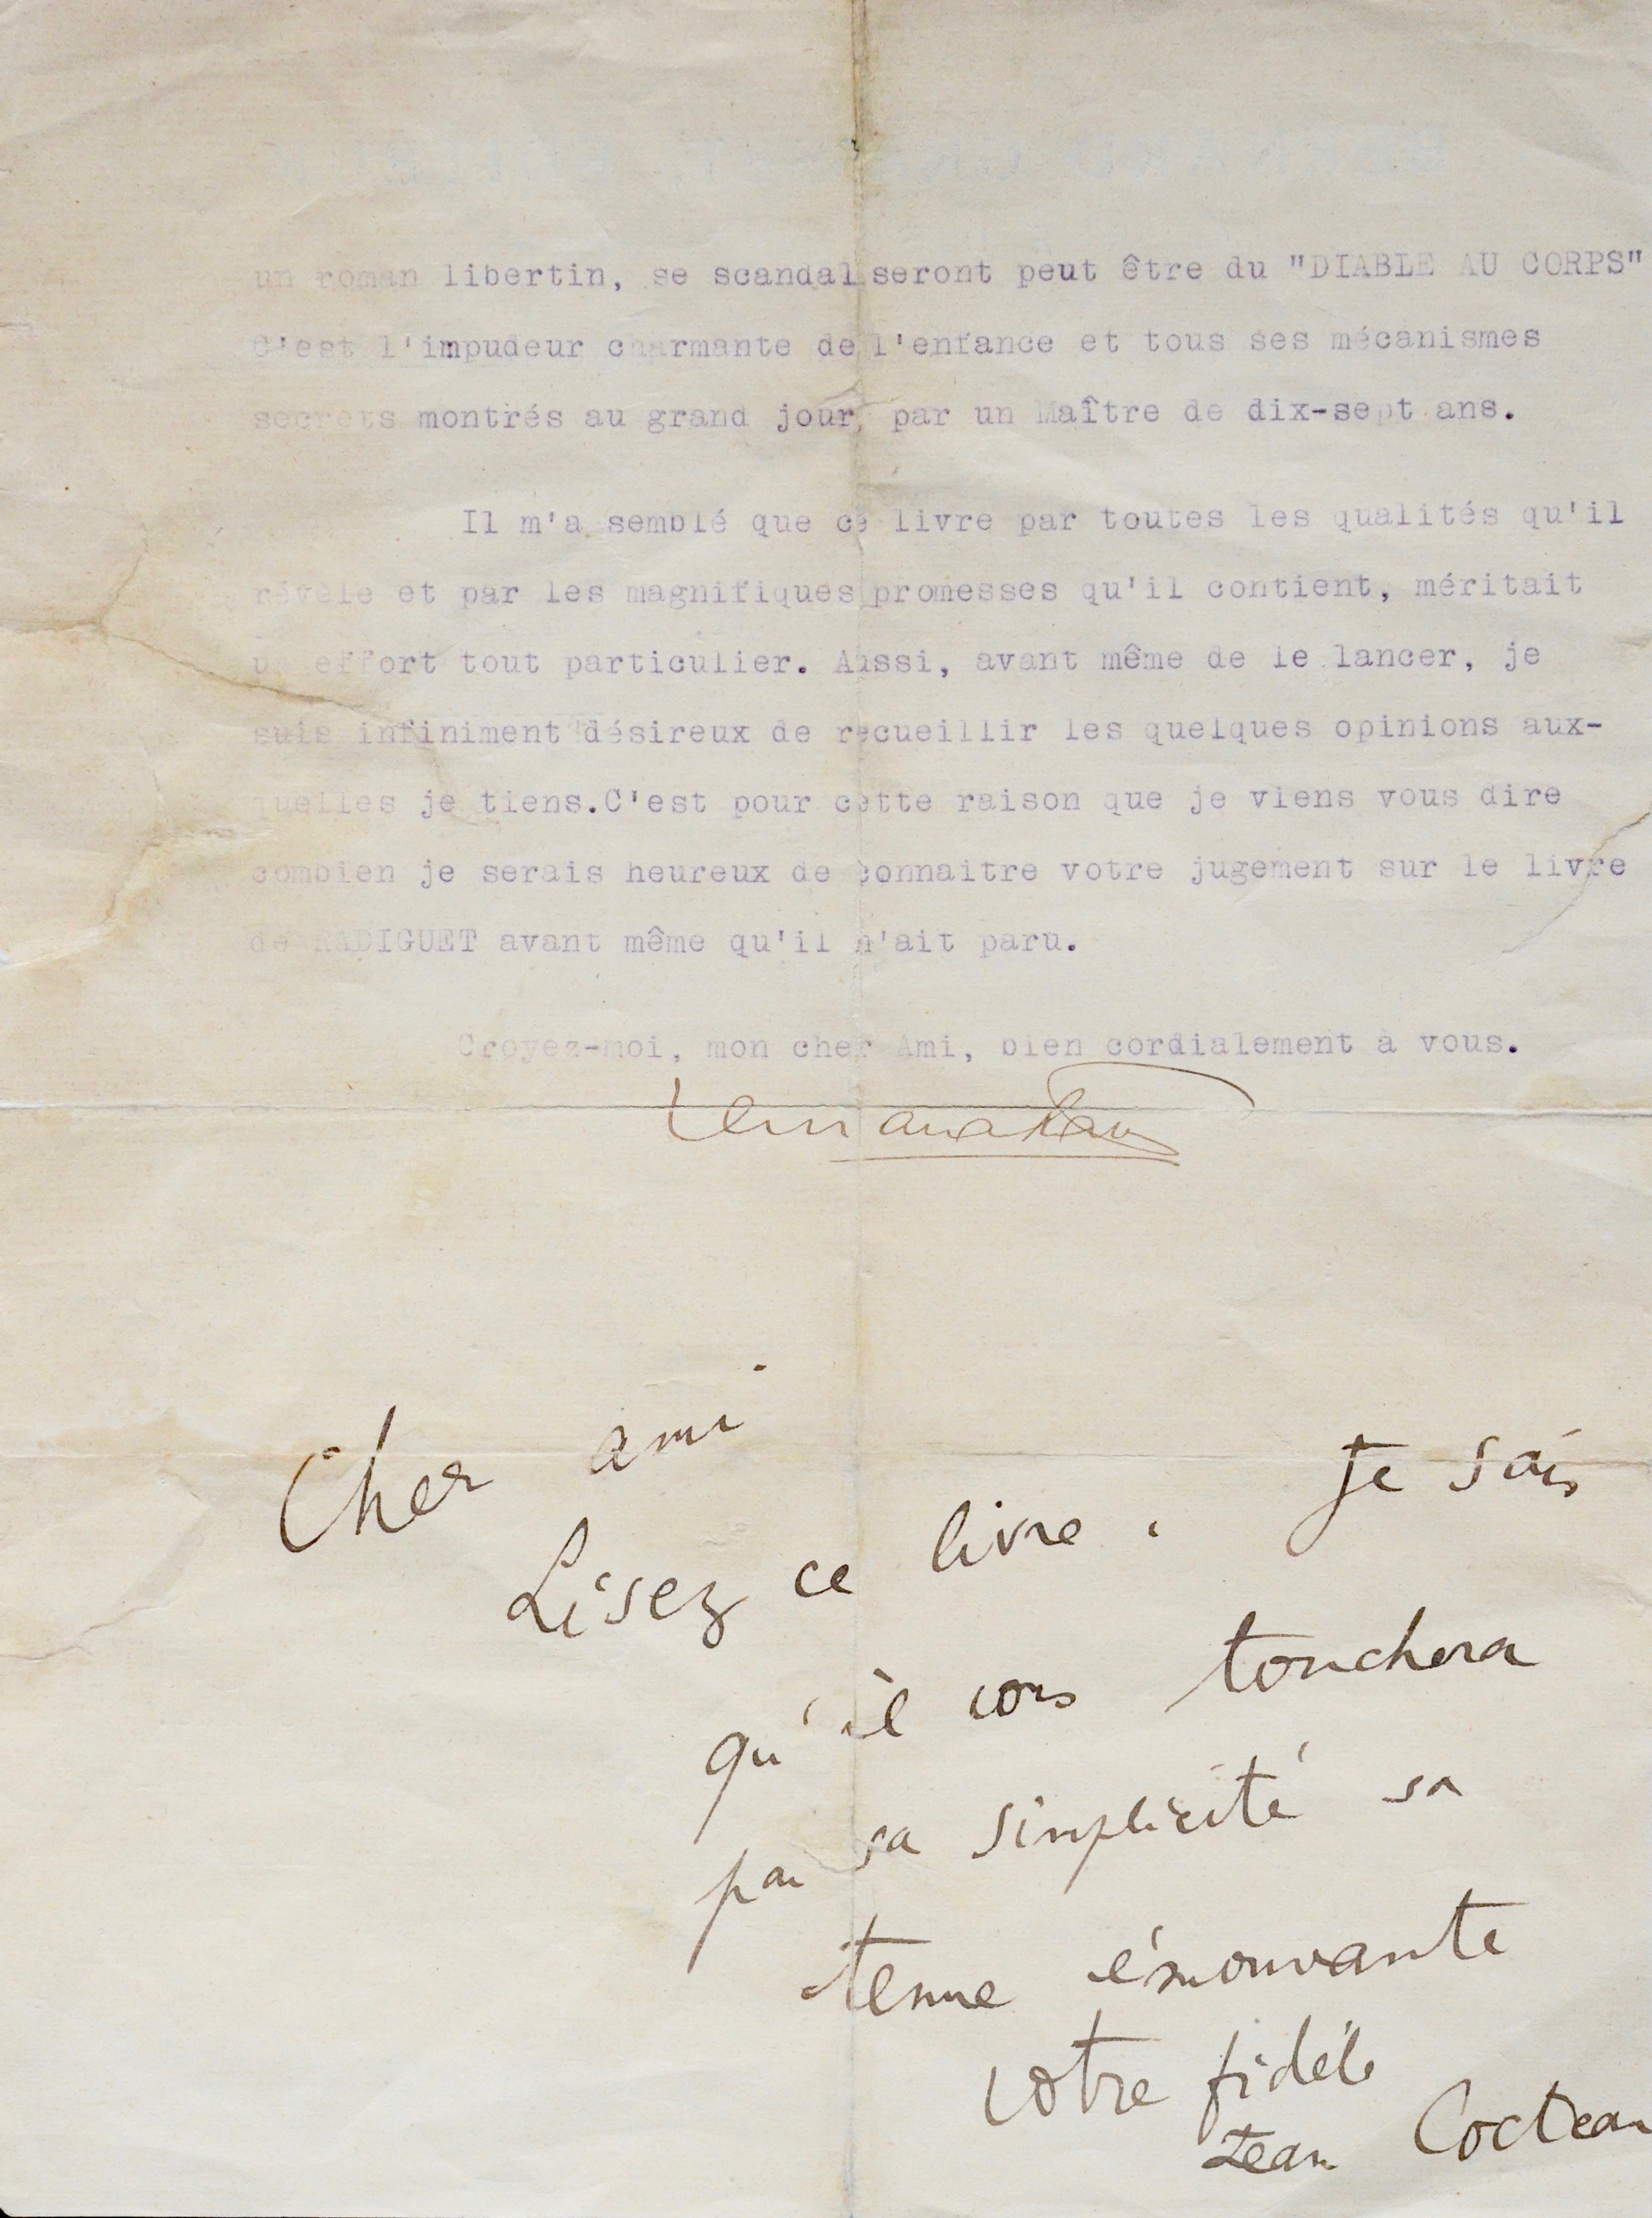 un roman libertin, se scandaliseront peut être du "DIABLE AU CORPS"
C'est l'impudeur charmante de l'enfance et tous ses mécanismes
secrets montrés au grand jour, par un Maître de dix-sept ans.
Il m'a semblé que ce livre par toutes les qualités qu'il
révèle et par les magnifiques promesses qu'il contient, méritait
un effort tout particulier. Aussi, avant même de le lancer, je
suis infiniment désireux de recueillir les quelques opinions aux-
quelles je tiens.C'est pour cette raison que je viens vous dire
combien je serais heureux de connaitre votre jugement sur le livre
de RADIGUET avant même qu'il n'ait paru.
Croyez-moi, mon cher Ami, bien cordialement à vous.
Cher ami
Lisez ce livre. Je sais
qu'il vous touchera
par sa simplicité sa
tenue émouvante
votre fidèle
Jean Cocteau